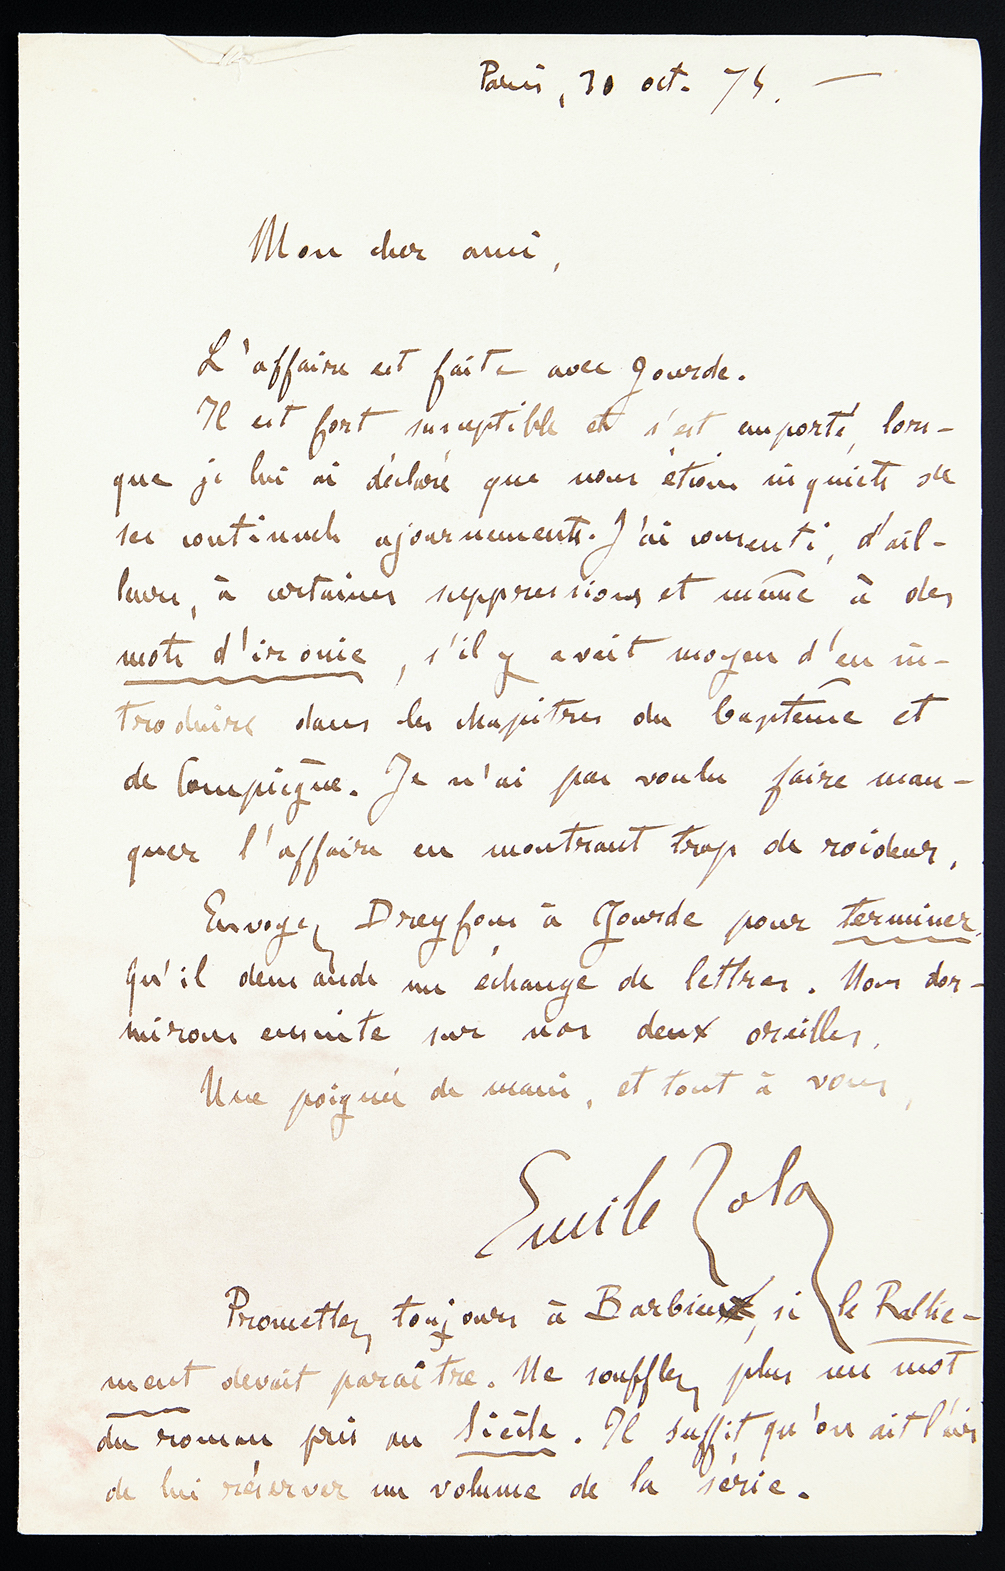 Paris, 30 oct. 75. —
Mon cher ami,
L'affaire est faite avec Jourde.
Il est fort susceptible et s'est emporté, lors-
que je lui ai déclaré que nous étions inquiets de
ses continuels ajournements. J'ai consenti, d'ail-
leurs, à certaines suppressions et même à des
mots d'ironie, s'il y avait moyen d'en in-
troduire dans les chapitres du baptême et
de Compiègne. Je n'ai pas voulu faire man-
quer l'affaire en montrant trop de roideur.
Envoyez Dreyfous à Jourde pour terminer,
qu'il demande un échange de lettres. Nous dor-
mirons ensuite sur nos deux oreilles.
Une poignée de main, et tout à vous,
Emile Zola
Promettez toujours à Barbieux, si le Rallie-
ment devait paraître. Ne soufflez plus un mot
du roman pris au Siècle. Il suffit qu'on ait l'air
de lui réserver un volume de la série.